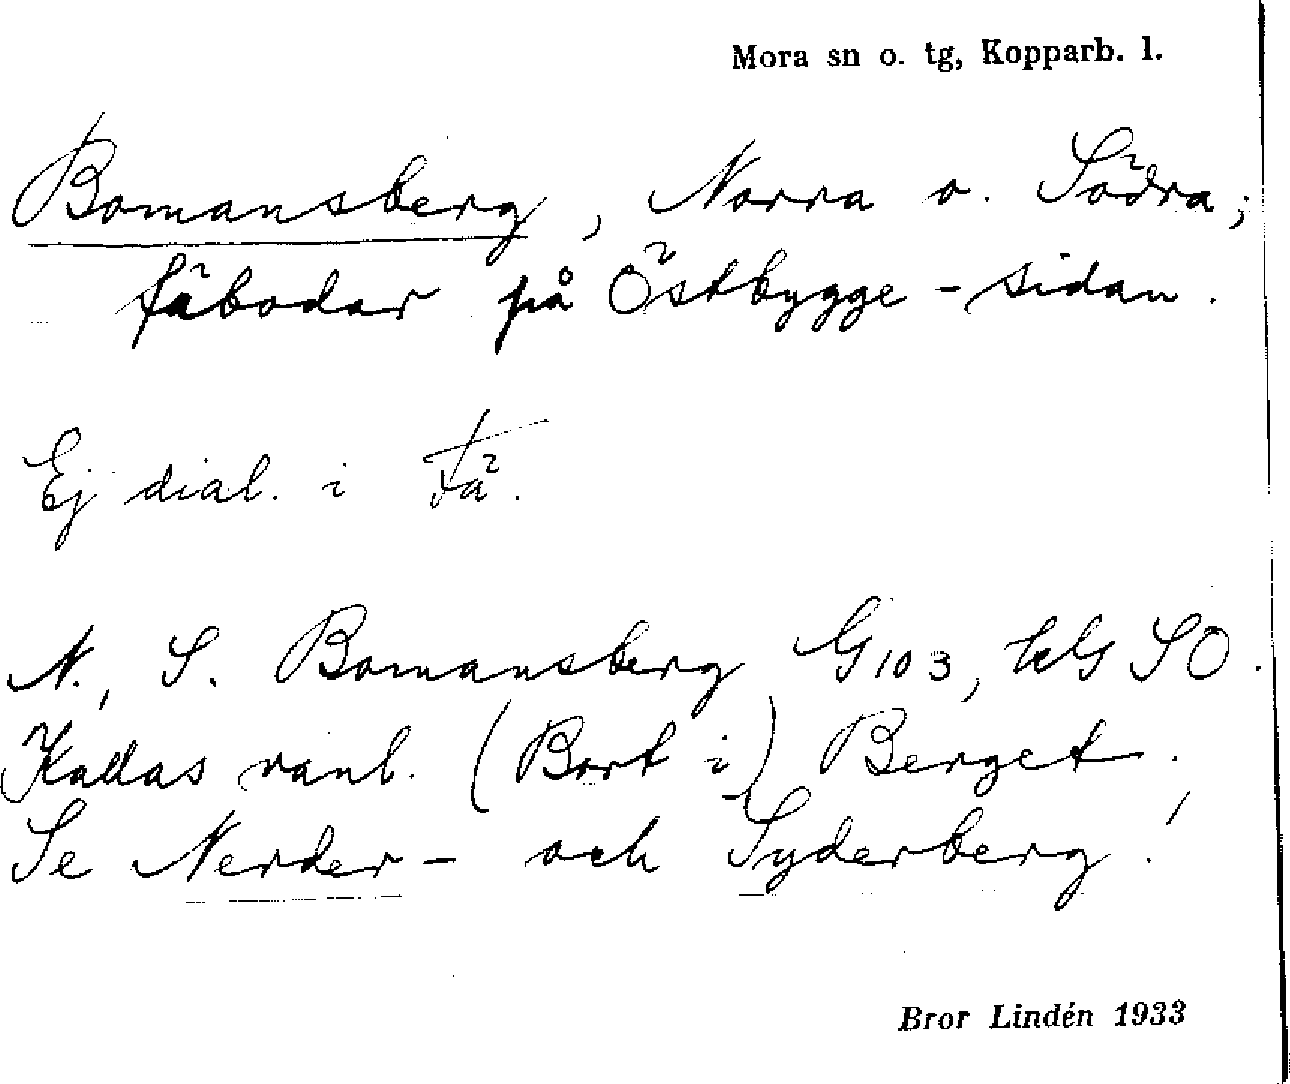 Mora sn o. tg, Kopparb. l.
Bomansberg, Norra o. Södra;
fäbodar på Östbygge-sidan.
Ej dial. i Fä.
N., S. Bomansberg G103, SO.
Kallas vanl. (Bort i) Berget.
Se Nerder- och Syderberg!
Bror Lindén 1933